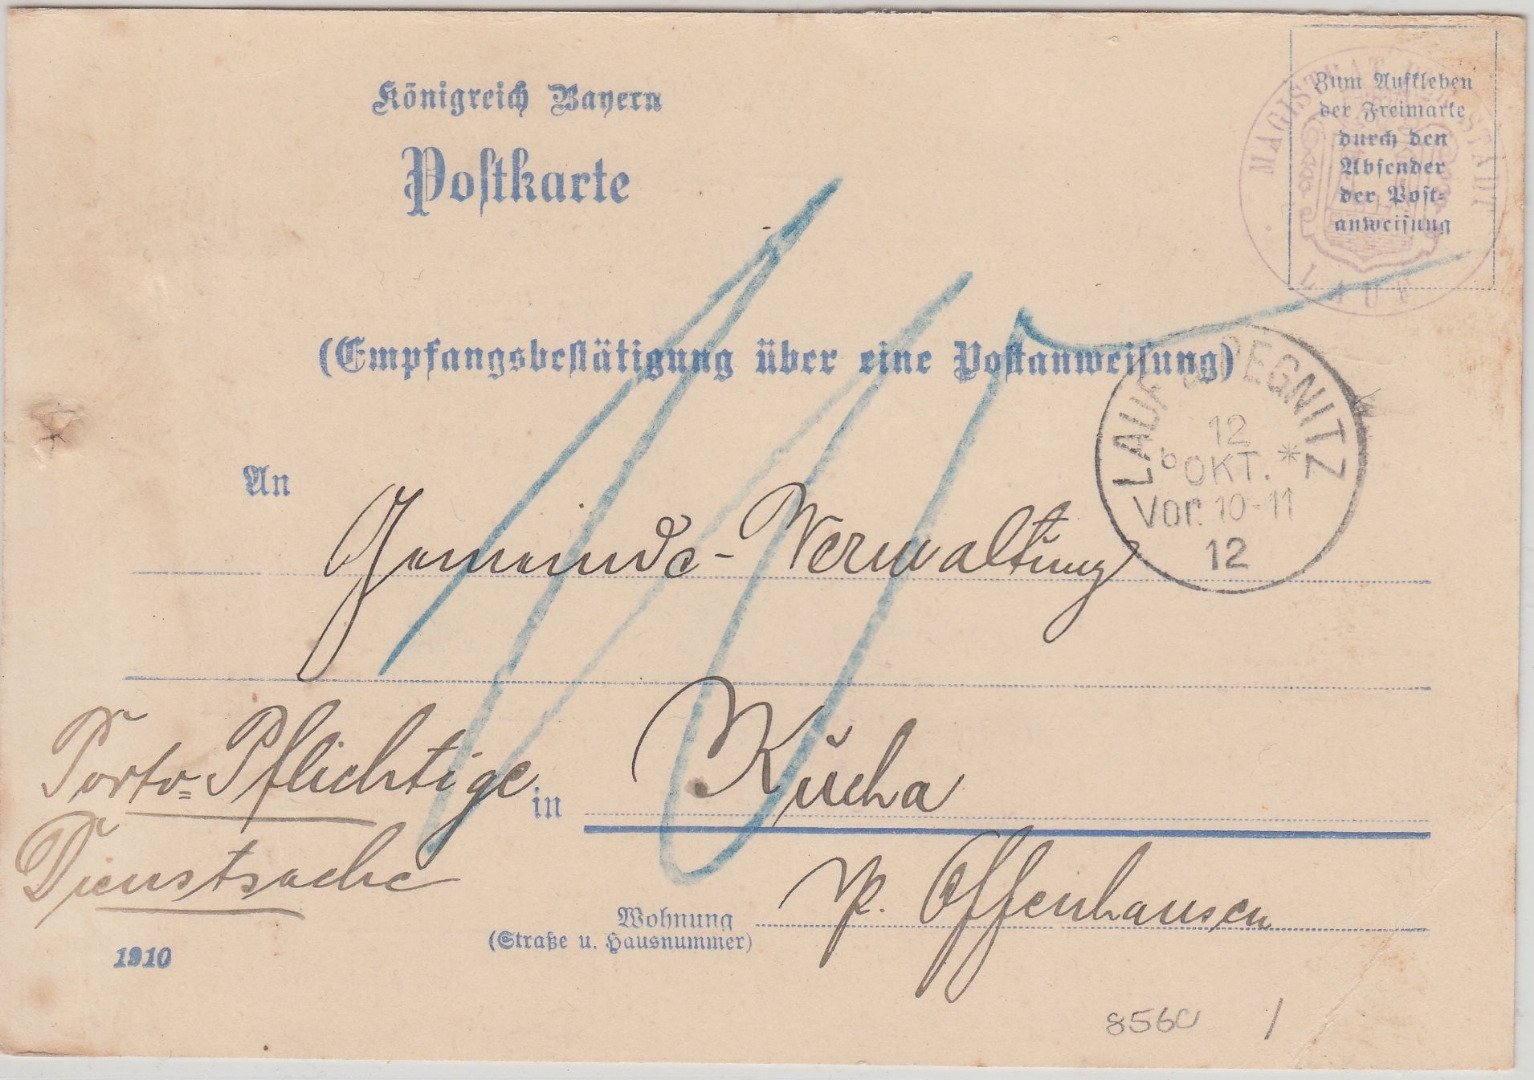 Königreich Bayern
Postkarte
Zum Aufkleben
der Freimarke
durch den
Absender
der Post-
anweisung
MAGISTRAT DER STADT
LAUF
(Empfangsbestätigung über eine Postanweisung)
LAUF a. PEGNITZ
12
b OKT. *
Vor. 10-11
12
An
Gemeinde-Verwaltung
Porto-Pflichtige
Dienstsache
in Kucha
Wohnung
(Straße u. Hausnummer)
p. Offenhausen
1910
10
8560